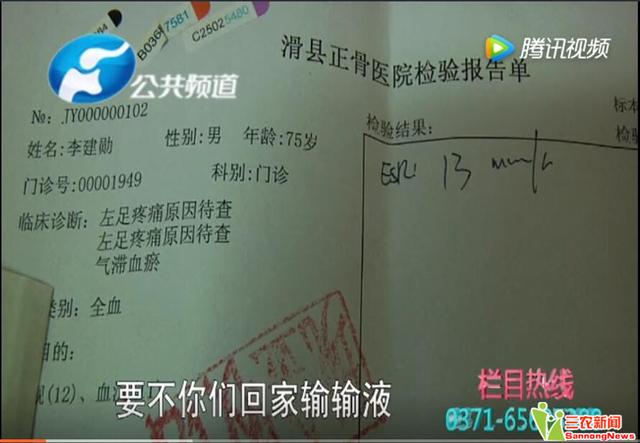 B0367581
C25025480
公共频道
腾讯视频
滑县正骨医院检验报告单
№: JY000000102
姓名:李建勋 性别:男 年龄:75岁
门诊号:00001949 科别:门诊
临床诊断: 左足疼痛原因待查
左足疼痛原因待查
气滞血瘀
类别: 全血
目的:
(12)、血
标本
检验结果:
检验
ESR: 13 mm/h
要不你们回家输输液
栏目热线
0371-65
三农新闻
SannongNews